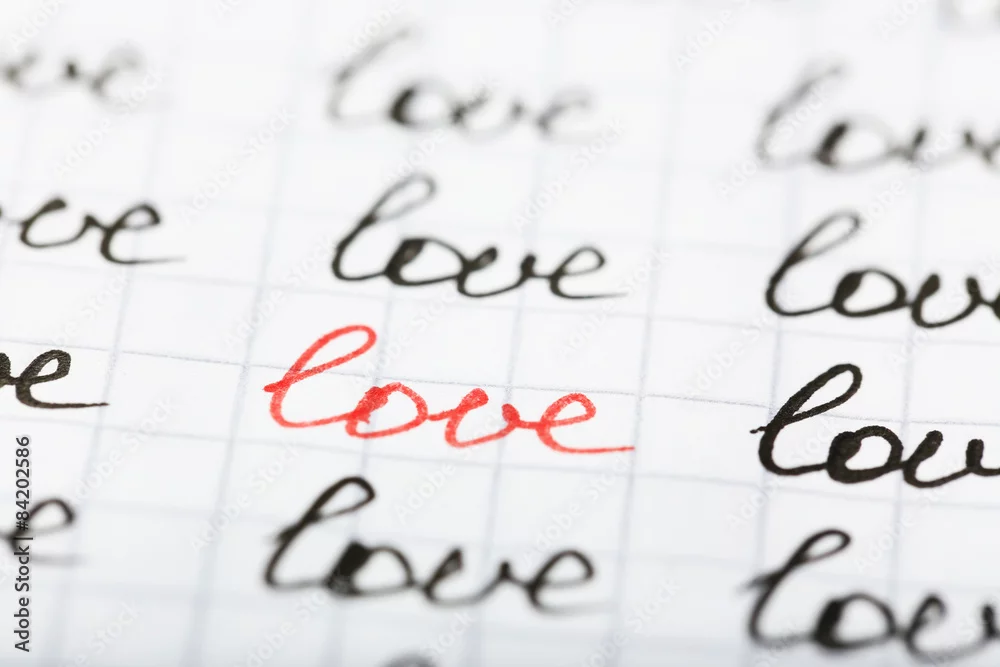 ve love love
ove love love
ve love lov
e love lov
Adobe Stock | #84202586